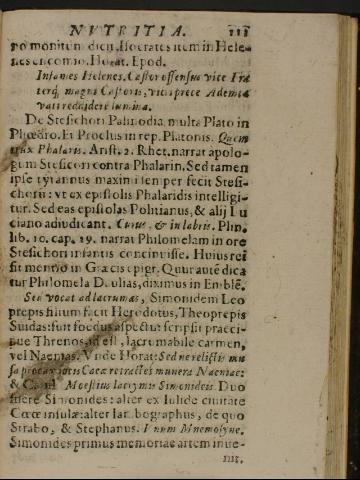 NVTRITIA. 111
no monitum dicit. Isocrates item in Hele-
nes encomio. Horat. Epod.
Infames Helenes. Castor offensus vice Fra
terq; magni Castoris, victi prece Adempta
vati reddidere lumina.
De Stesichori Palinodia multa Plato in
Phœdro. Et Proclus in rep. Platonis. Quem
trux Phalaris. Arist. 2. Rhet. narrat apolo-
gum Stesicori contra Phalarin. Sed tamen
ipse tyrannus maximi semper fecit Stesi-
chorū: vt ex epistolis Phalaridis intelligi-
tur. Sed eas epistolas Politianus, & alij Lu
ciano adiudicant. Cuius, & in labris. Plin.
lib. 10. cap. 29. narrat Philomelam in ore
Stesichori infantis concinuisse. Huius rei
fit mentio in Græcis epigr. Qur autē dica
tur Philomela Daulias, diximus in Emblē.
Seu vocat ad lacrumas, Simonidem Leo
prepis filium facit Herodotus, Theoprepis
Suidas: fuit foedus aspectu: scripsit præci-
pue Threnos, id est, lacrumabile carmen,
vel Naenias. Vnde Horat: Sed ne relictis mu
sa procax iocis Caeæ retractes munera Naeniae:
& Catul. Moestius lacrymis Simonideis. Duo
fuere Simonides: alter ex Iulide ciuitate
Coeœ insulæ: alter Iambographus, de quo
Strabo, & Stephanus. Vnum Mnemosyne.
Simonides primus memoriae artem inue-